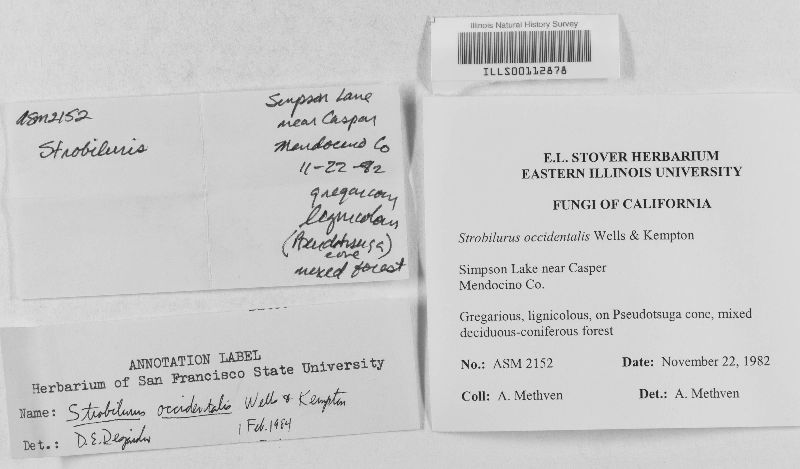 Illinois Natural History Survey
ILLS00112878
ASM2152
Strobiluris
Simpson Lane
near Caspar
Mendocino Co
11-22-82
gregarious
lignicolous
(Pseudotsuga)
cone
mixed forest
ANNOTATION LABEL
Herbarium of San Francisco State University
Name: Strobilurus occidentalis Wells & Kempton
Det.: D.E. Desjardin 1 Feb. 1984
E.L. STOVER HERBARIUM
EASTERN ILLINOIS UNIVERSITY
FUNGI OF CALIFORNIA
Strobilurus occidentalis Wells & Kempton
Simpson Lake near Casper
Mendocino Co.
Gregarious, lignicolous, on Pseudotsuga conc, mixed
deciduous-coniferous forest
No.: ASM 2152 Date: November 22, 1982
Coll: A. Methven Det.: A. Methven